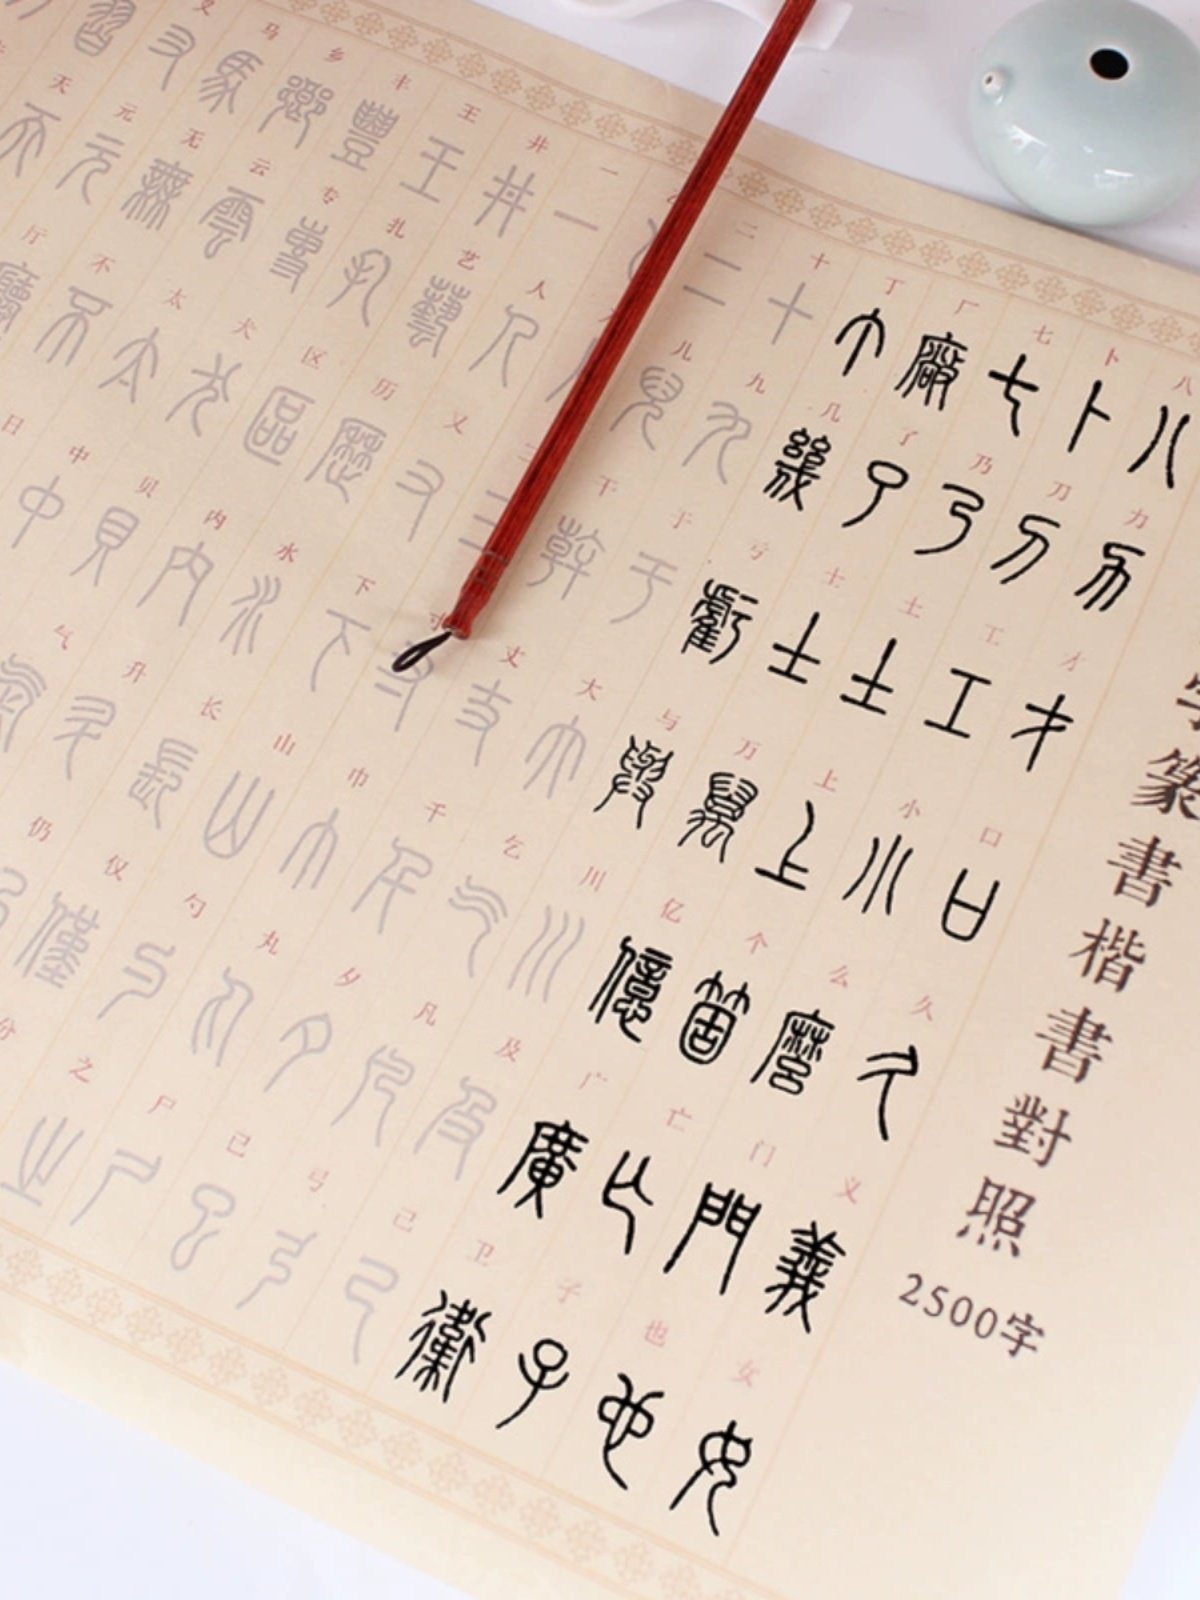 字篆書楷書對照
2500字
一 二 十 丁 厂 七 卜 八
人 儿 九 几 了 乃 刀 力
又 三 干 于 亏 士 土 工 才
下 寸 丈 大 与 万 上 小 口
山 巾 千 乞 川 亿 个 么 久
勺 丸 夕 凡 及 广 亡 门 义
之 尸 已 弓 己 卫 子 也 女
叉 马 乡 丰 王 井
天 元 无 云 专 扎 艺
厅 不 太 犬 区 历
日 中 贝 内 水
气 升 长
仍 仅
分